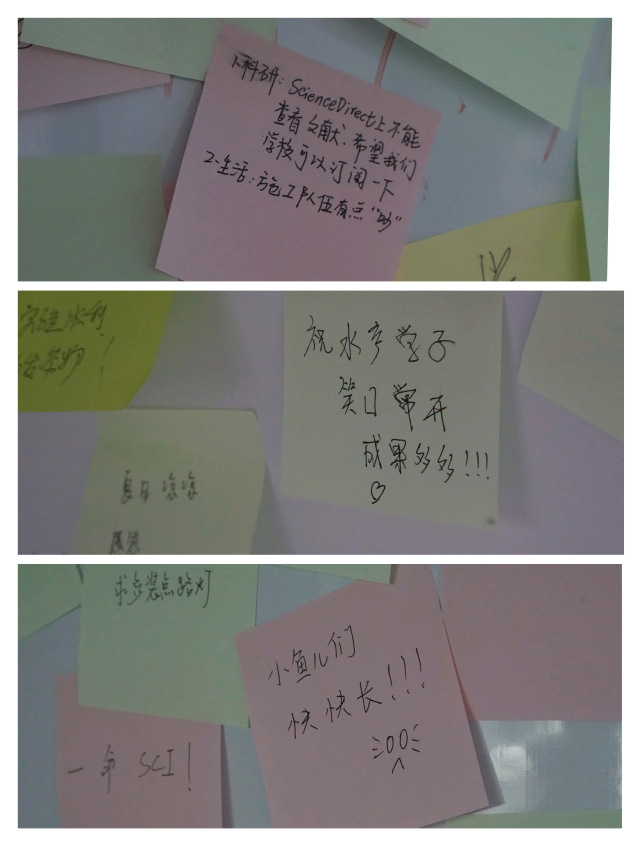 1.科研：ScienceDirect上不能
查看文献，希望我们
学校可以订阅一下
2.生活：施工队伍有点“吵”
祝水产学子
笑口常开
成果多多!!!
实验顺利
夏日凉凉
求多装点路灯
小鱼儿们
快快长!!!
一篇 SCI!